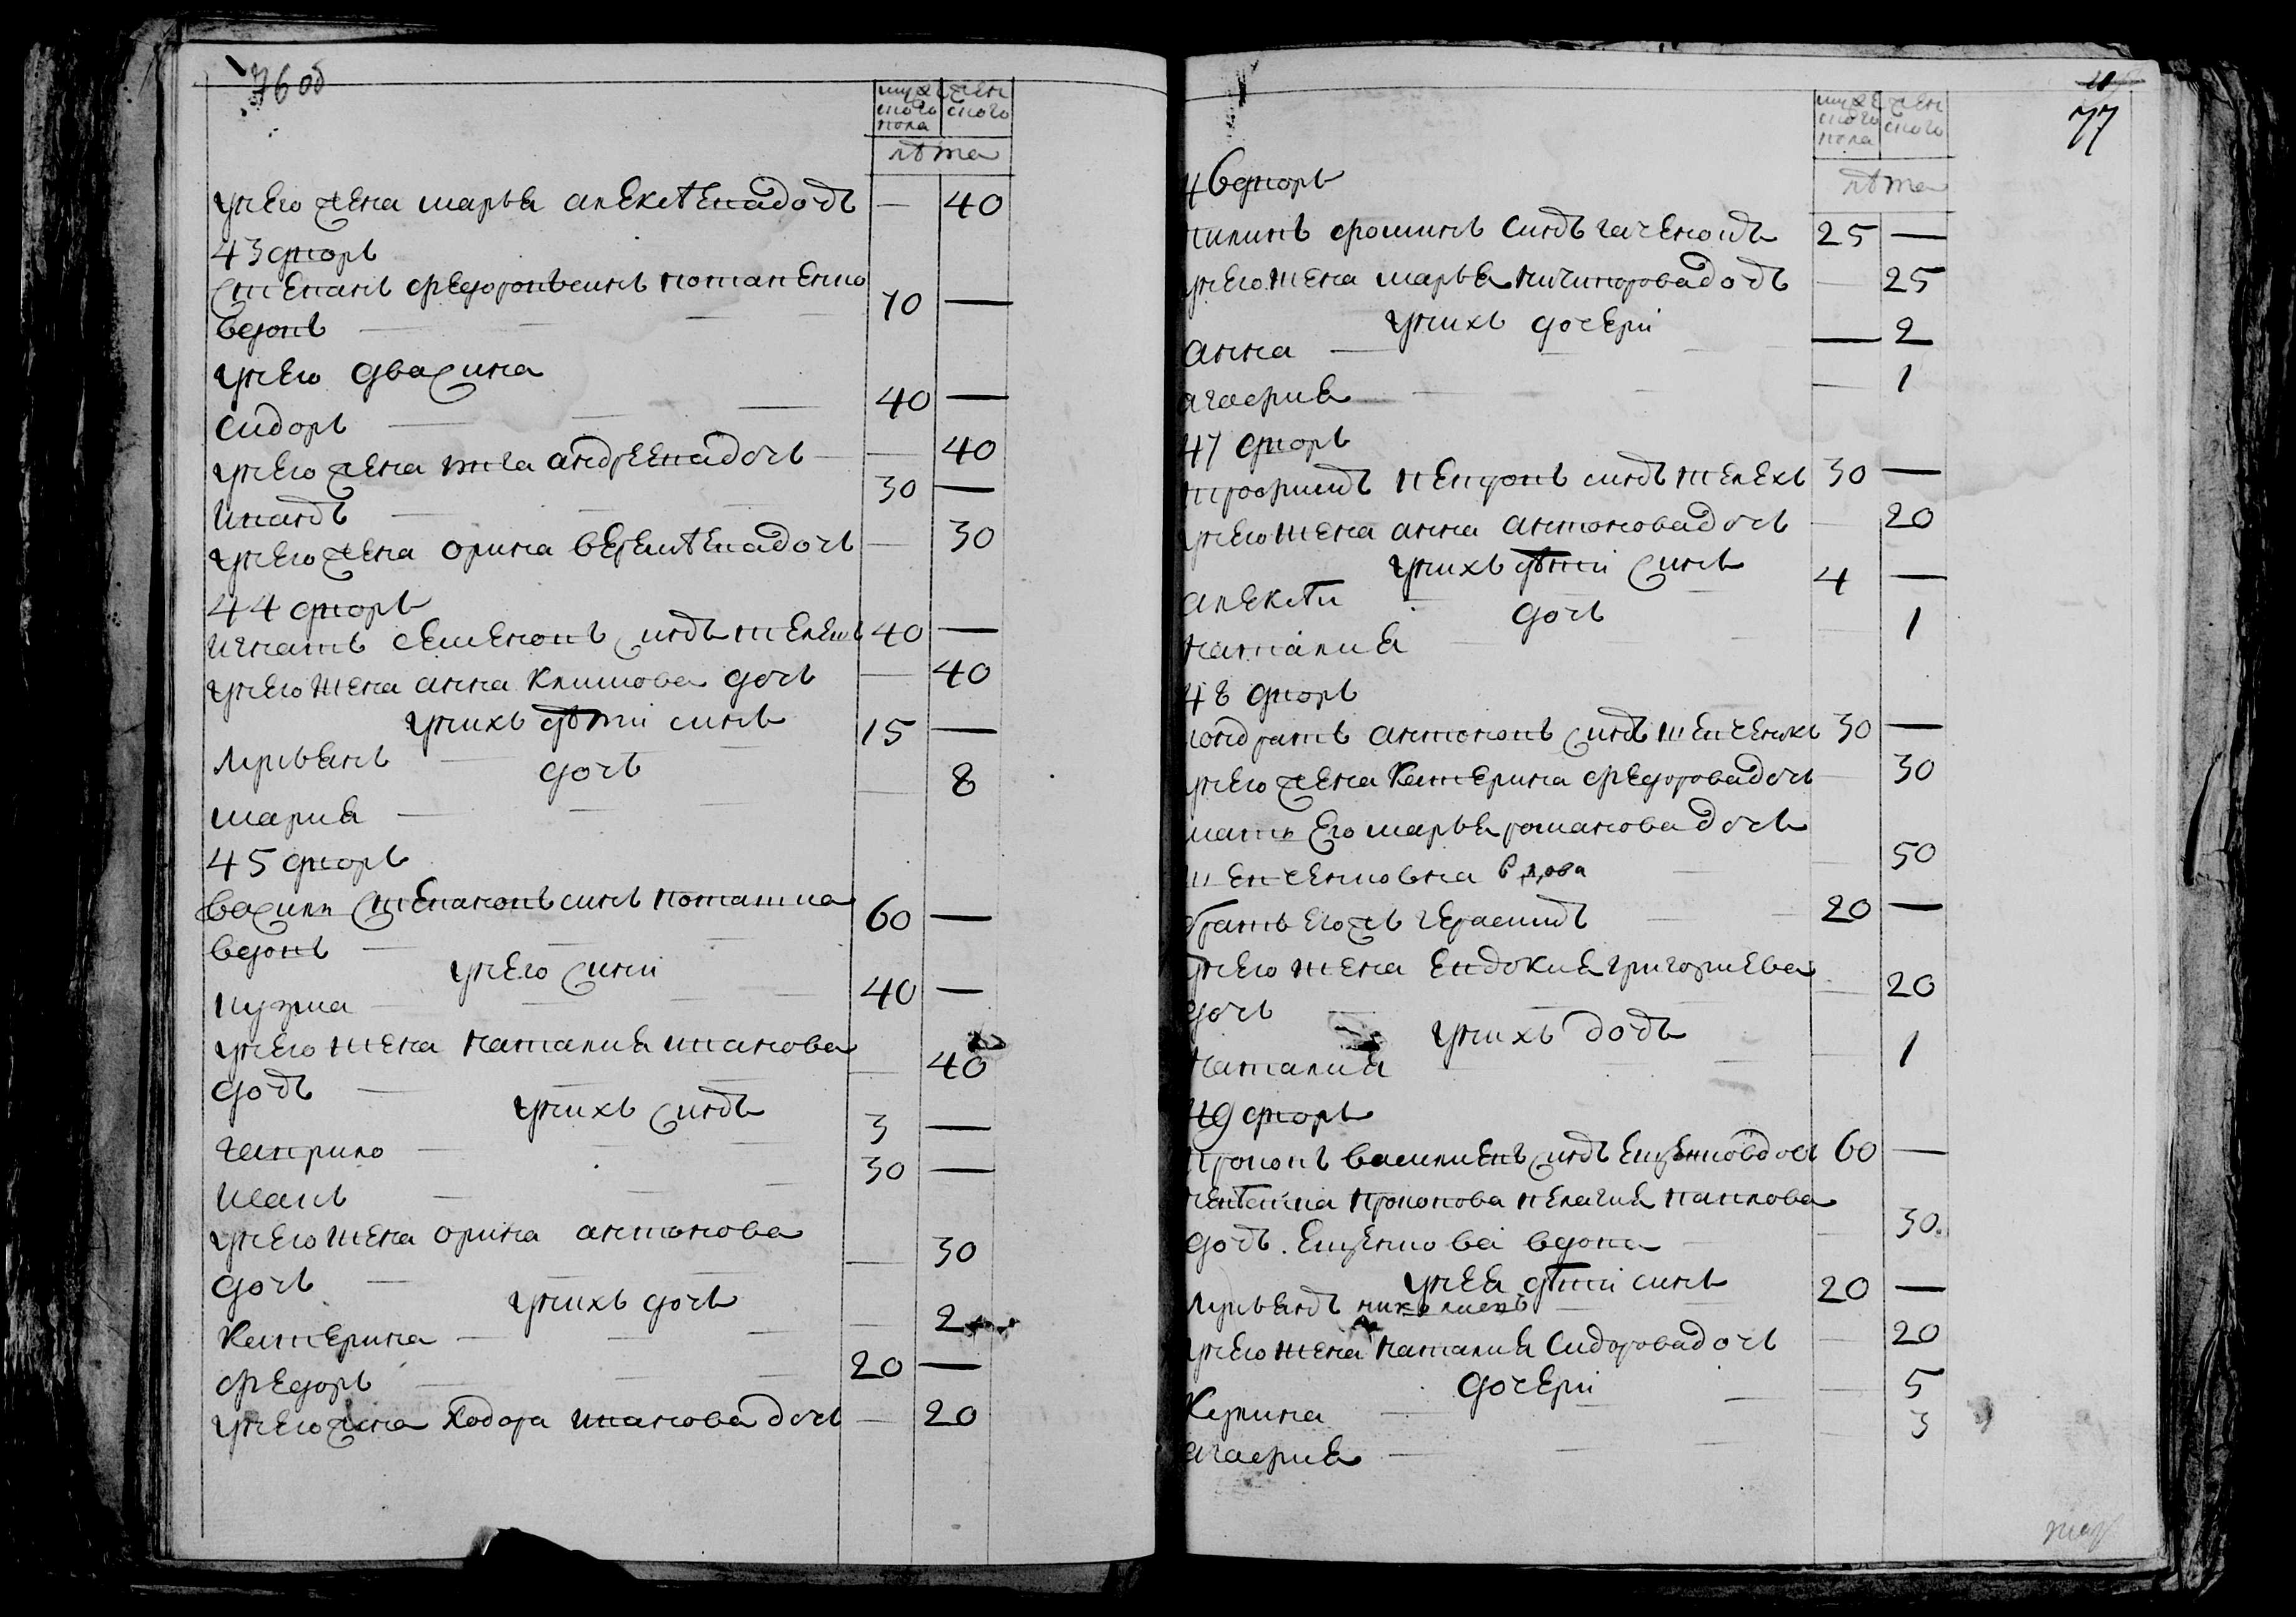 76 об
мужеского пола
женского
лѣта
унего жена марья алексѣева дочь — 40
43 дворъ
степанъ федоровъ синъ потапенко 70 —
вдовъ
унего два сина
сидоръ 40 —
унего жена андреева дочь — 40
иванъ 30 —
унего жена орина веремѣева дочь — 30
44 дворъ
игнатъ семеновъ синъ 40 —
унего жена анна климова дочь — 40
унихъ дѣти синъ
лукьянъ 15 —
дочь
мария — 8
45 дворъ
василий степановъ синъ 60 —
вдовъ
унего сини
кузма 40 —
унего жена наталия иванова
дочь — 40
унихъ синъ
гаврило 3 —
иванъ 30 —
унего жена орина антонова
дочь — 30
унихъ дочь
катерина — 2
федоръ 20 —
унего жена ходора иванова дочь — 20
77
мужеского пола
женского
лѣта
46 дворъ
филипъ фоминъ синъ 25 —
унего жена марья никифорова дочь — 25
унихъ дочери
анна — 2
агафия — 1
47 дворъ
трофимъ петровъ синъ телехъ 30 —
унего жена анна антонова дочь — 20
унихъ дѣти синъ
алексѣи 4 —
дочь
наталия — 1
48 дворъ
кондратъ антоновъ синъ шевченкъ 30 —
унего жена катерина федорова дочь — 30
мати его марья романова дочь
шевченкова вдова — 50
братъ егожъ герасимъ 20 —
унего жена евдокия григориева
дочь — 20
унихъ дочь
наталия — 1
49 дворъ
прокопъ василиевъ синъ ещенко вдовъ 60 —
невѣстка прокопова пелагия павлова
дочь ещенкова вдова — 30
унея дѣти синъ
лукьянъ николаевъ 20 —
унего жена наталия сидорова дочь — 20
дочери
— 5
агафия — 3